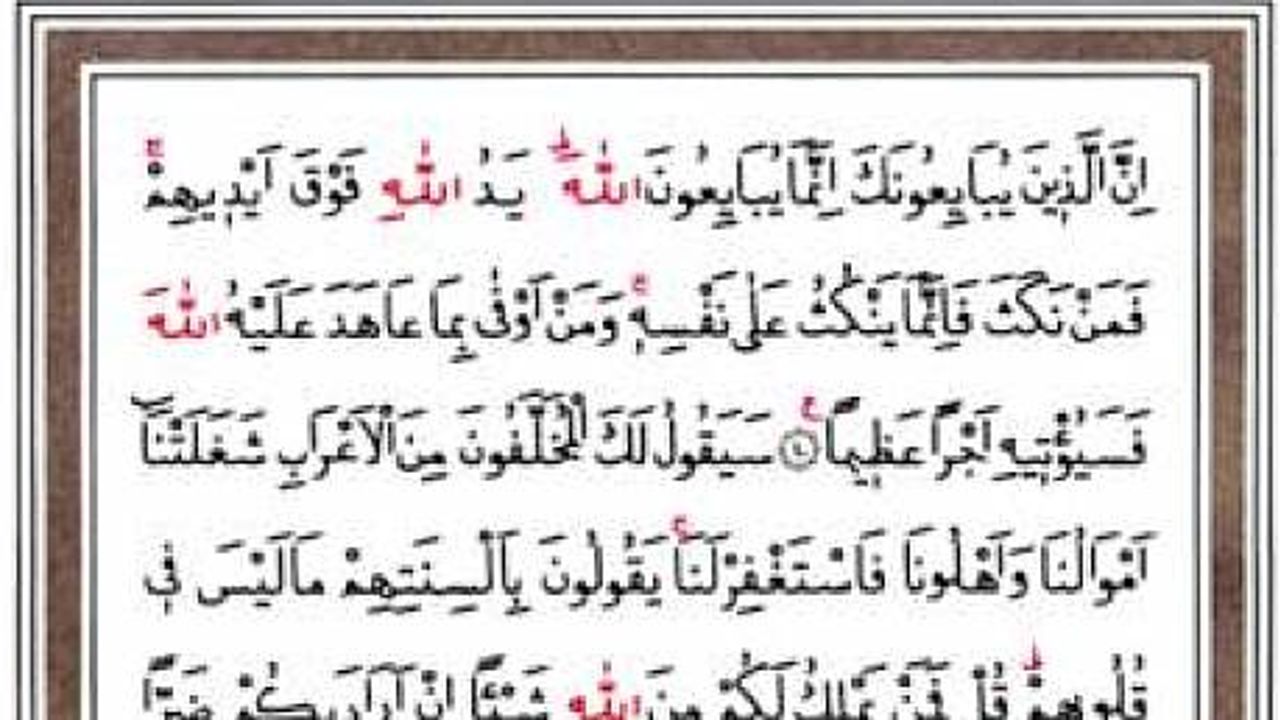 اِنَّ الَّذٖينَ يُبَايِعُونَكَ اِنَّمَا يُبَايِعُونَ اللّٰهَؕ يَدُ اللّٰهِ فَوْقَ اَيْدٖيهِمْۚ
فَمَنْ نَكَثَ فَاِنَّمَا يَنْكُثُ عَلٰى نَفْسِهٖۚ وَمَنْ اَوْفٰى بِمَا عَاهَدَ عَلَيْهُ اللّٰهَ
فَسَيُؤْتٖيهِ اَجْرًا عَظٖيمًا ࣖ ﴿١٠﴾ سَيَقُولُ لَكَ الْمُخَلَّفُونَ مِنَ الْاَعْرَابِ شَغَلَتْنَٓا
اَمْوَالُنَا وَاَهْلُونَا فَاسْتَغْفِرْ لَنَاۚ يَقُولُونَ بِاَلْسِنَتِهِمْ مَا لَيْسَ فٖى
قُلُوبِهِمْؕ قُلْ فَمَنْ يَمْلِكُ لَكُمْ مِنَ اللّٰهِ شَيْـًٔا اِنْ اَرَادَ بِكُمْ ضَرًّا